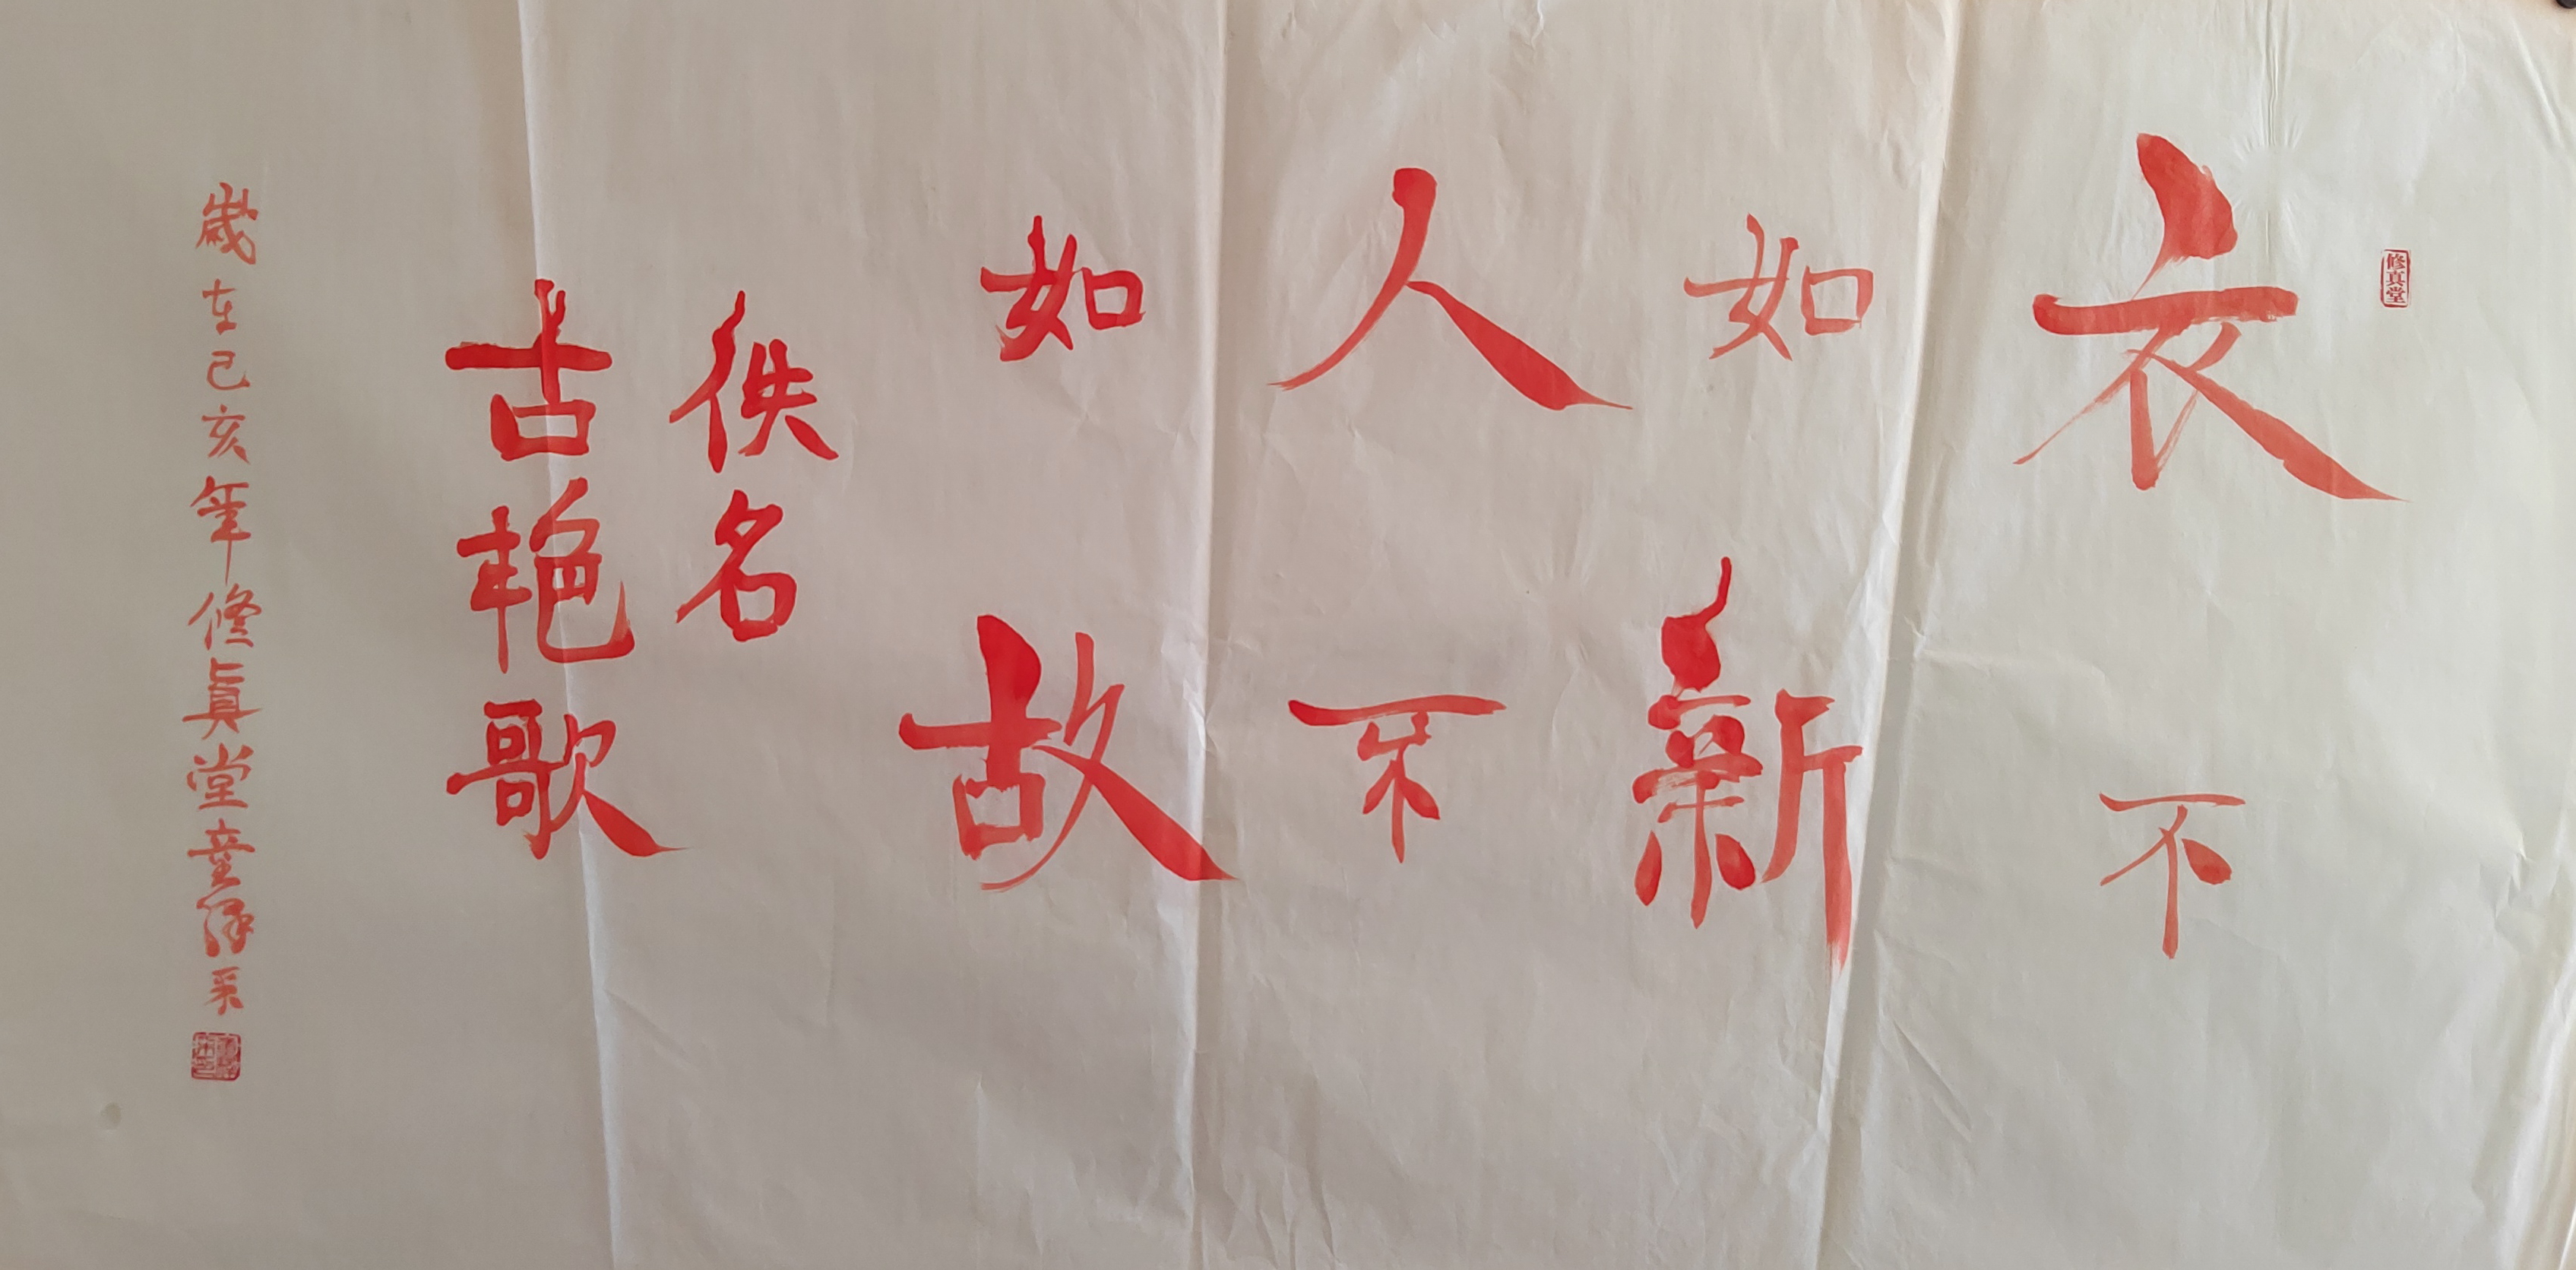 修真堂
衣不
如新
人不
如故
佚名
古艳歌
歲在己亥年修真堂童